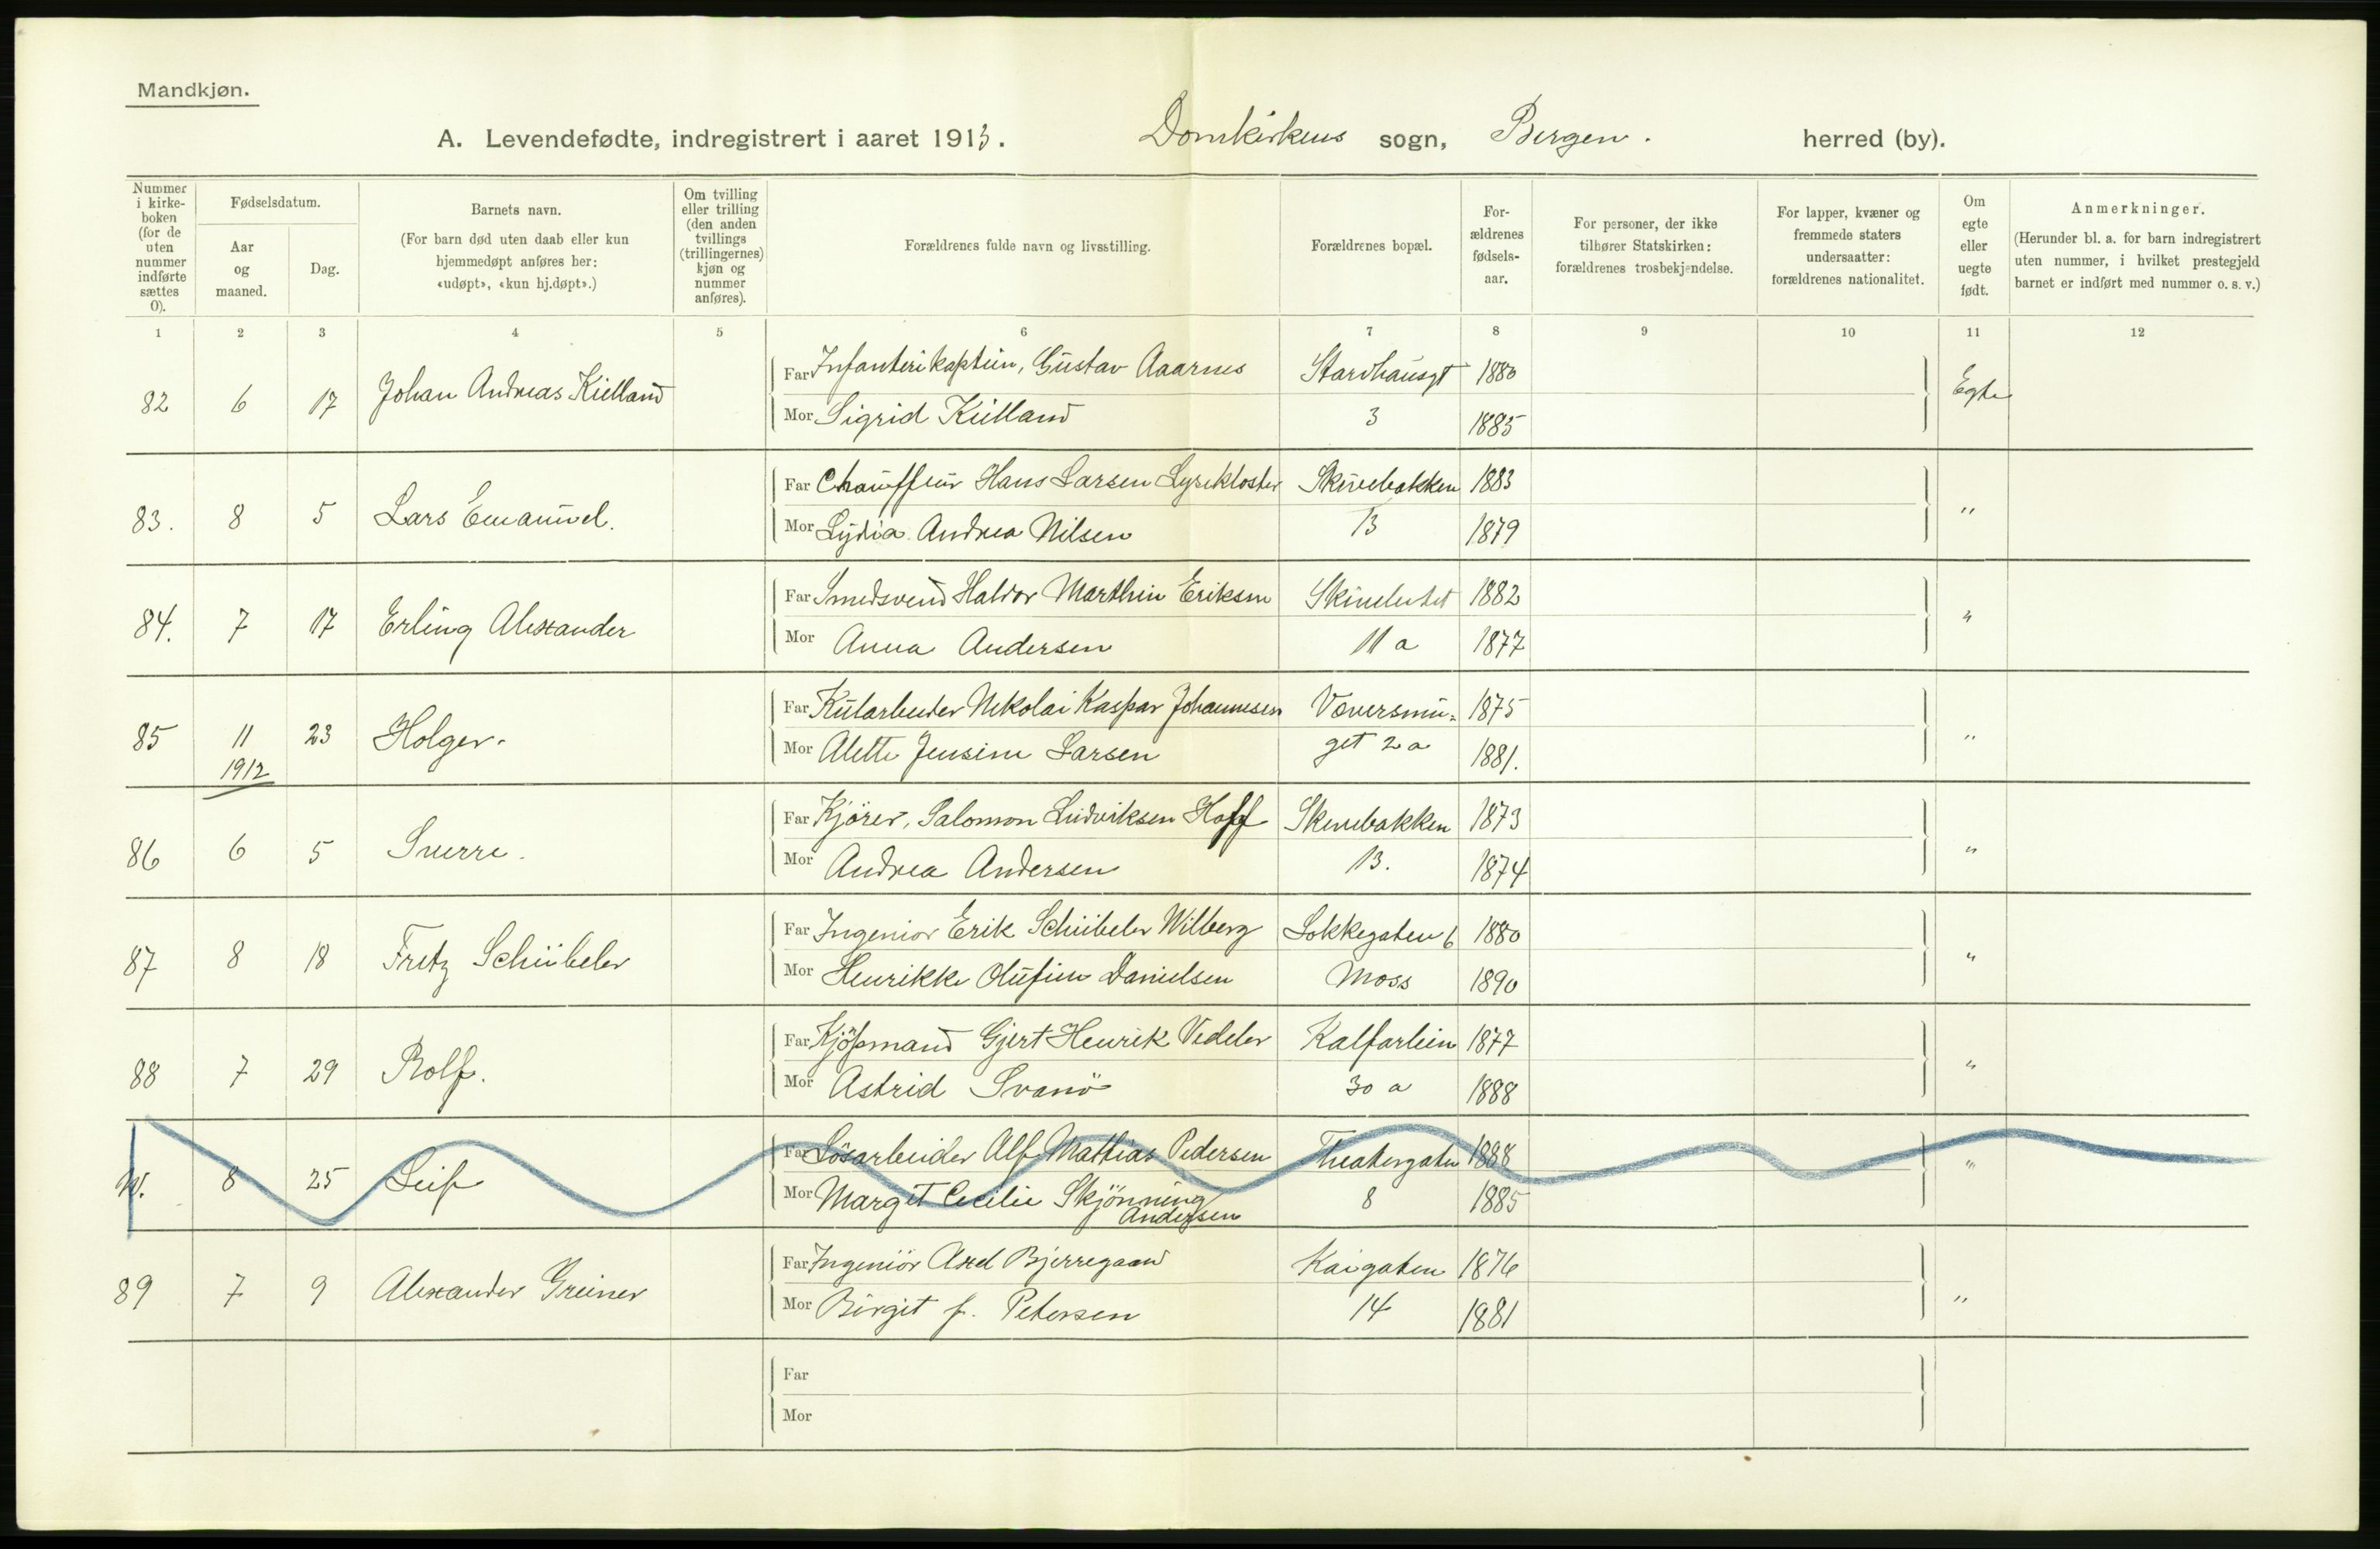 Mandkjøn.
A. Levendefødte, indregistrert i aaret 1913. Domkirkens sogn, Bergen. herred (by).
Nummer i kirke-boken (for de uten nummer indførte sættes 0).
Fødselsdatum.
Aar og maaned.
Dag.
Barnets navn.
(For barn død uten daab eller kun hjemmedøpt anføres her: «udøpt», «kun hj.døpt».)
Om tvilling eller trilling (den anden tvillings (trillingernes) kjøn og nummer anføres).
Forældrenes fulde navn og livsstilling.
Forældrenes bopæl.
For-ældrenes fødsels-aar.
For personer, der ikke tilhører Statskirken: forældrenes trosbekjendelse.
For lapper, kvæner og fremmede staters undersaatter: forældrenes nationalitet.
Om egte eller uegte født.
Anmerkninger.
(Herunder bl. a. for barn indregistrert uten nummer, i hvilket prestegjeld barnet er indført med nummer o. s. v.)
1 2 3 4 5 6 7 8 9 10 11 12
82 6 17 Johan Andreas Kielland Far Infanterikaptein, Gustav Aaarnes 1880 Egte
Mor Sigrid Kielland 3 1885
83. 8 5 Lars Emanuel. Far Chauffeur Hans Larsen Lysekloster Skivebakken 1883 "
Mor Lydia Andrea Nilsen 13 1879
84. 7 17 Erling Alexander Far Smedsvend Haldor Marthin Eriksen 1882 "
Mor Anna Andersen 11 a 1877
85 11 23 Holger. Far Kularbeider Nikolai Kaspar Johannesen Væversmu= 1875 "
1912 Mor Alette Jensine Larsen get 2 a 1881.
86 6 5 Sverre. Far Kjörer, Salomon Ludviksen Hoff Skivebakken 1873 "
Mor Andrea Andersen 13. 1874
87 8 18 Fretz Schübeler Far Ingeniør Erik Schübeler Wilberg Løkkegaten 6 1880 "
Mor Henrikke Olufine Danielsen Moss 1890
88 7 29 Rolf. Far Kjöpmand Gjert Henrik Vedeler Kalfarlien 1877 "
Mor Astrid Svanö 30 a 1888
8 25 Leif Far Løsarbeider Alf Mathias Pedersen Theatergaten 1888 "
Mor Margit Cecilie Skjönning 8 1885
Andersen
89 7 9 Alexander Greiner Far Ingeniör Axel Bjerregaard Kaigaten 1876 "
Mor Birgit f. Petersen 14 1881
Far
Mor